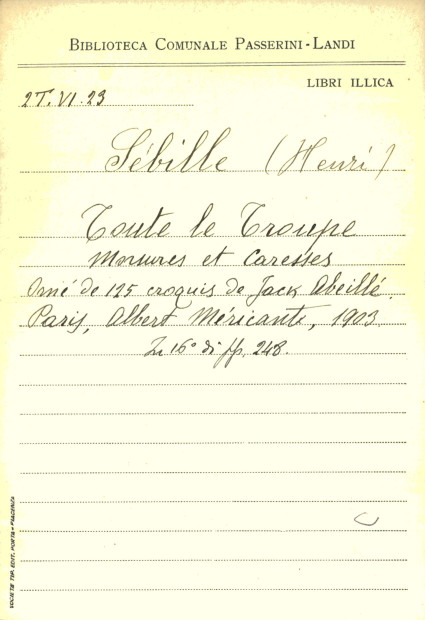 BIBLIOTECA COMUNALE PASSERINI-LANDI
LIBRI ILLICA
27.VI.23
Sébille (Henri)
Toute le Troupe
Morsures et Caresses
Orné de 125 croquis de Jack Abeillé.
Paris, Albert Méricante, 1903
In 16° di pp. 248.